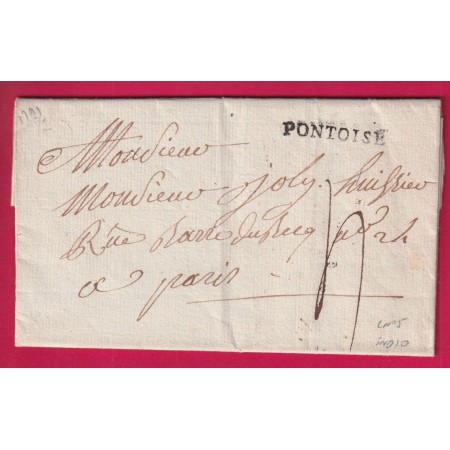 1791
PONTOISE
Monsieur
Monsieur joly huissier
Rüe Barre du Becq n° 21
a paris